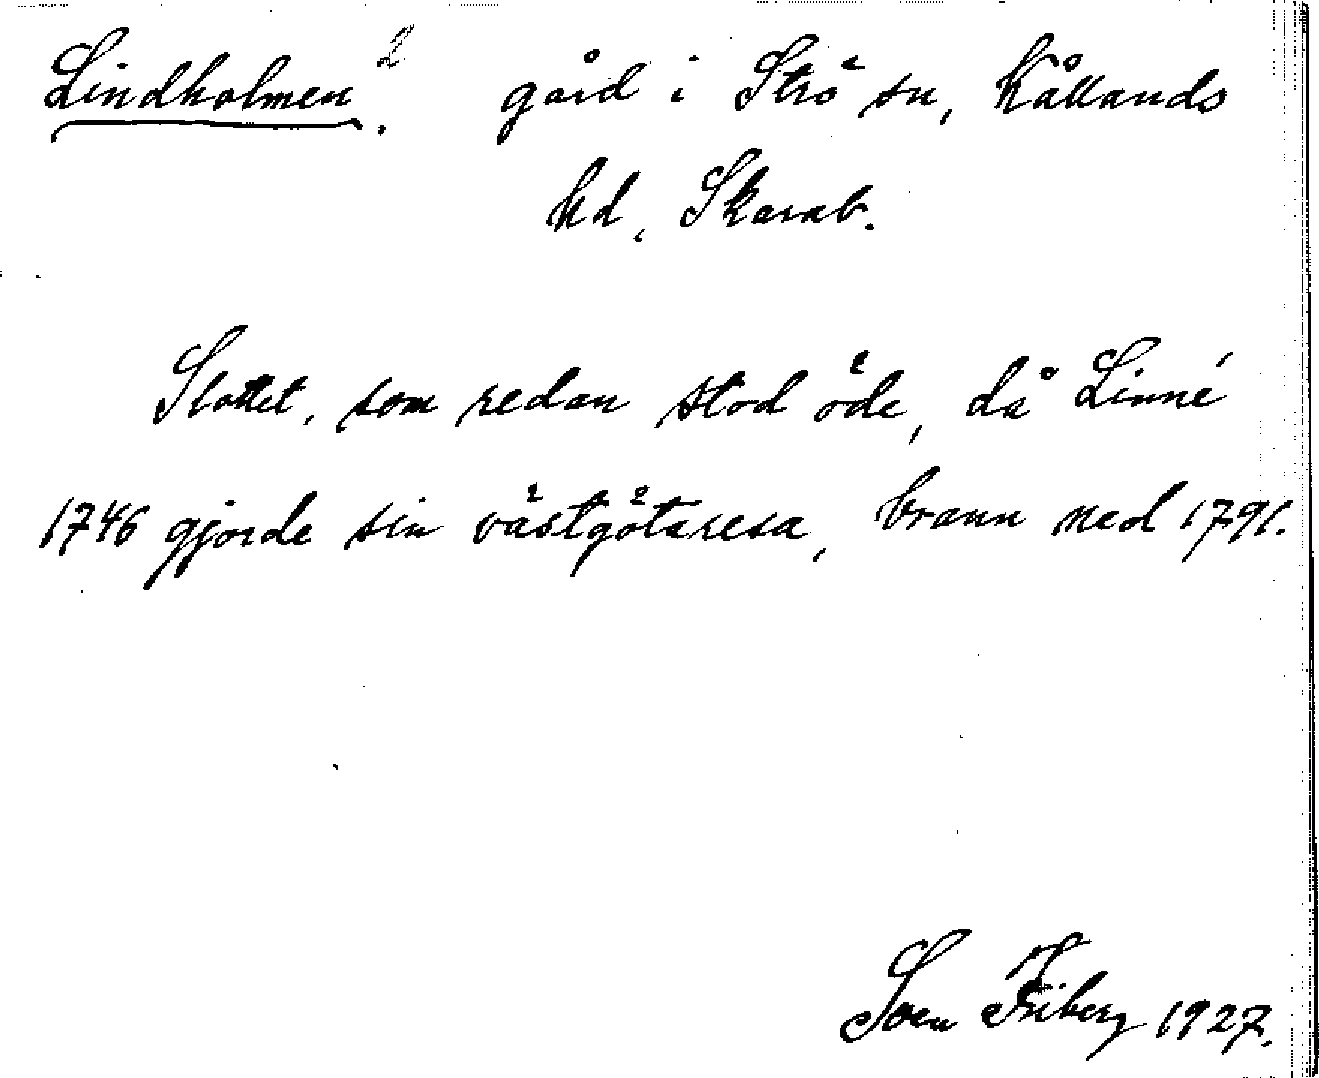 Lindholmen.² gård i Strö sn, Kållands
hd, Skarab.
Slottet, som redan stod öde, då Linné
1746 gjorde sin västgötaresa, brann ned 1791.
Sven Friberg 1927.